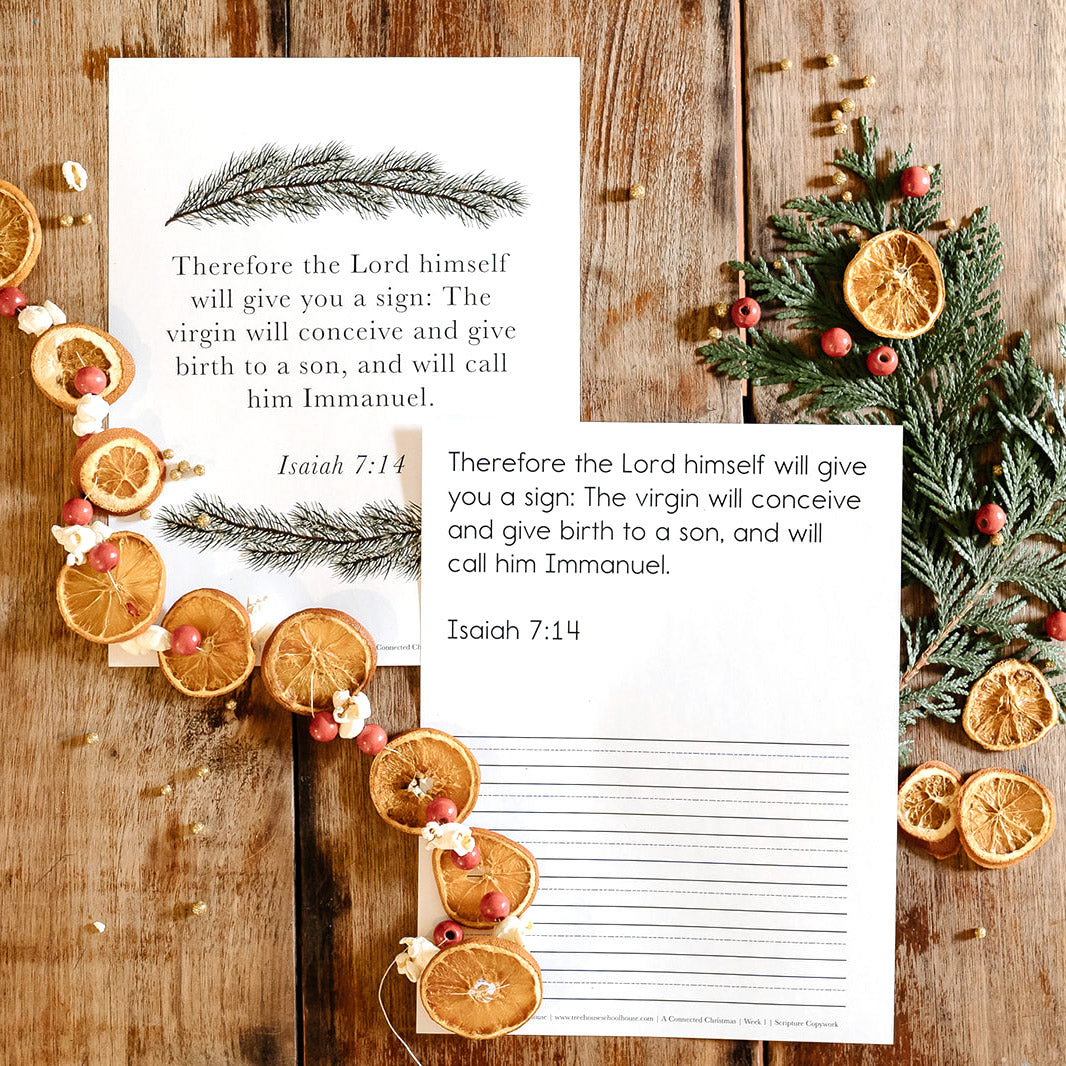 Therefore the Lord himself
will give you a sign: The
virgin will conceive and give
birth to a son, and will call
him Immanuel.
Isaiah 7:14
Connected Ch
Therefore the Lord himself will give
you a sign: The virgin will conceive
and give birth to a son, and will
call him Immanuel.
Isaiah 7:14
ouse | www.treehouseschoolhouse.com | A Connected Christmas | Week 1 | Scripture Copywork